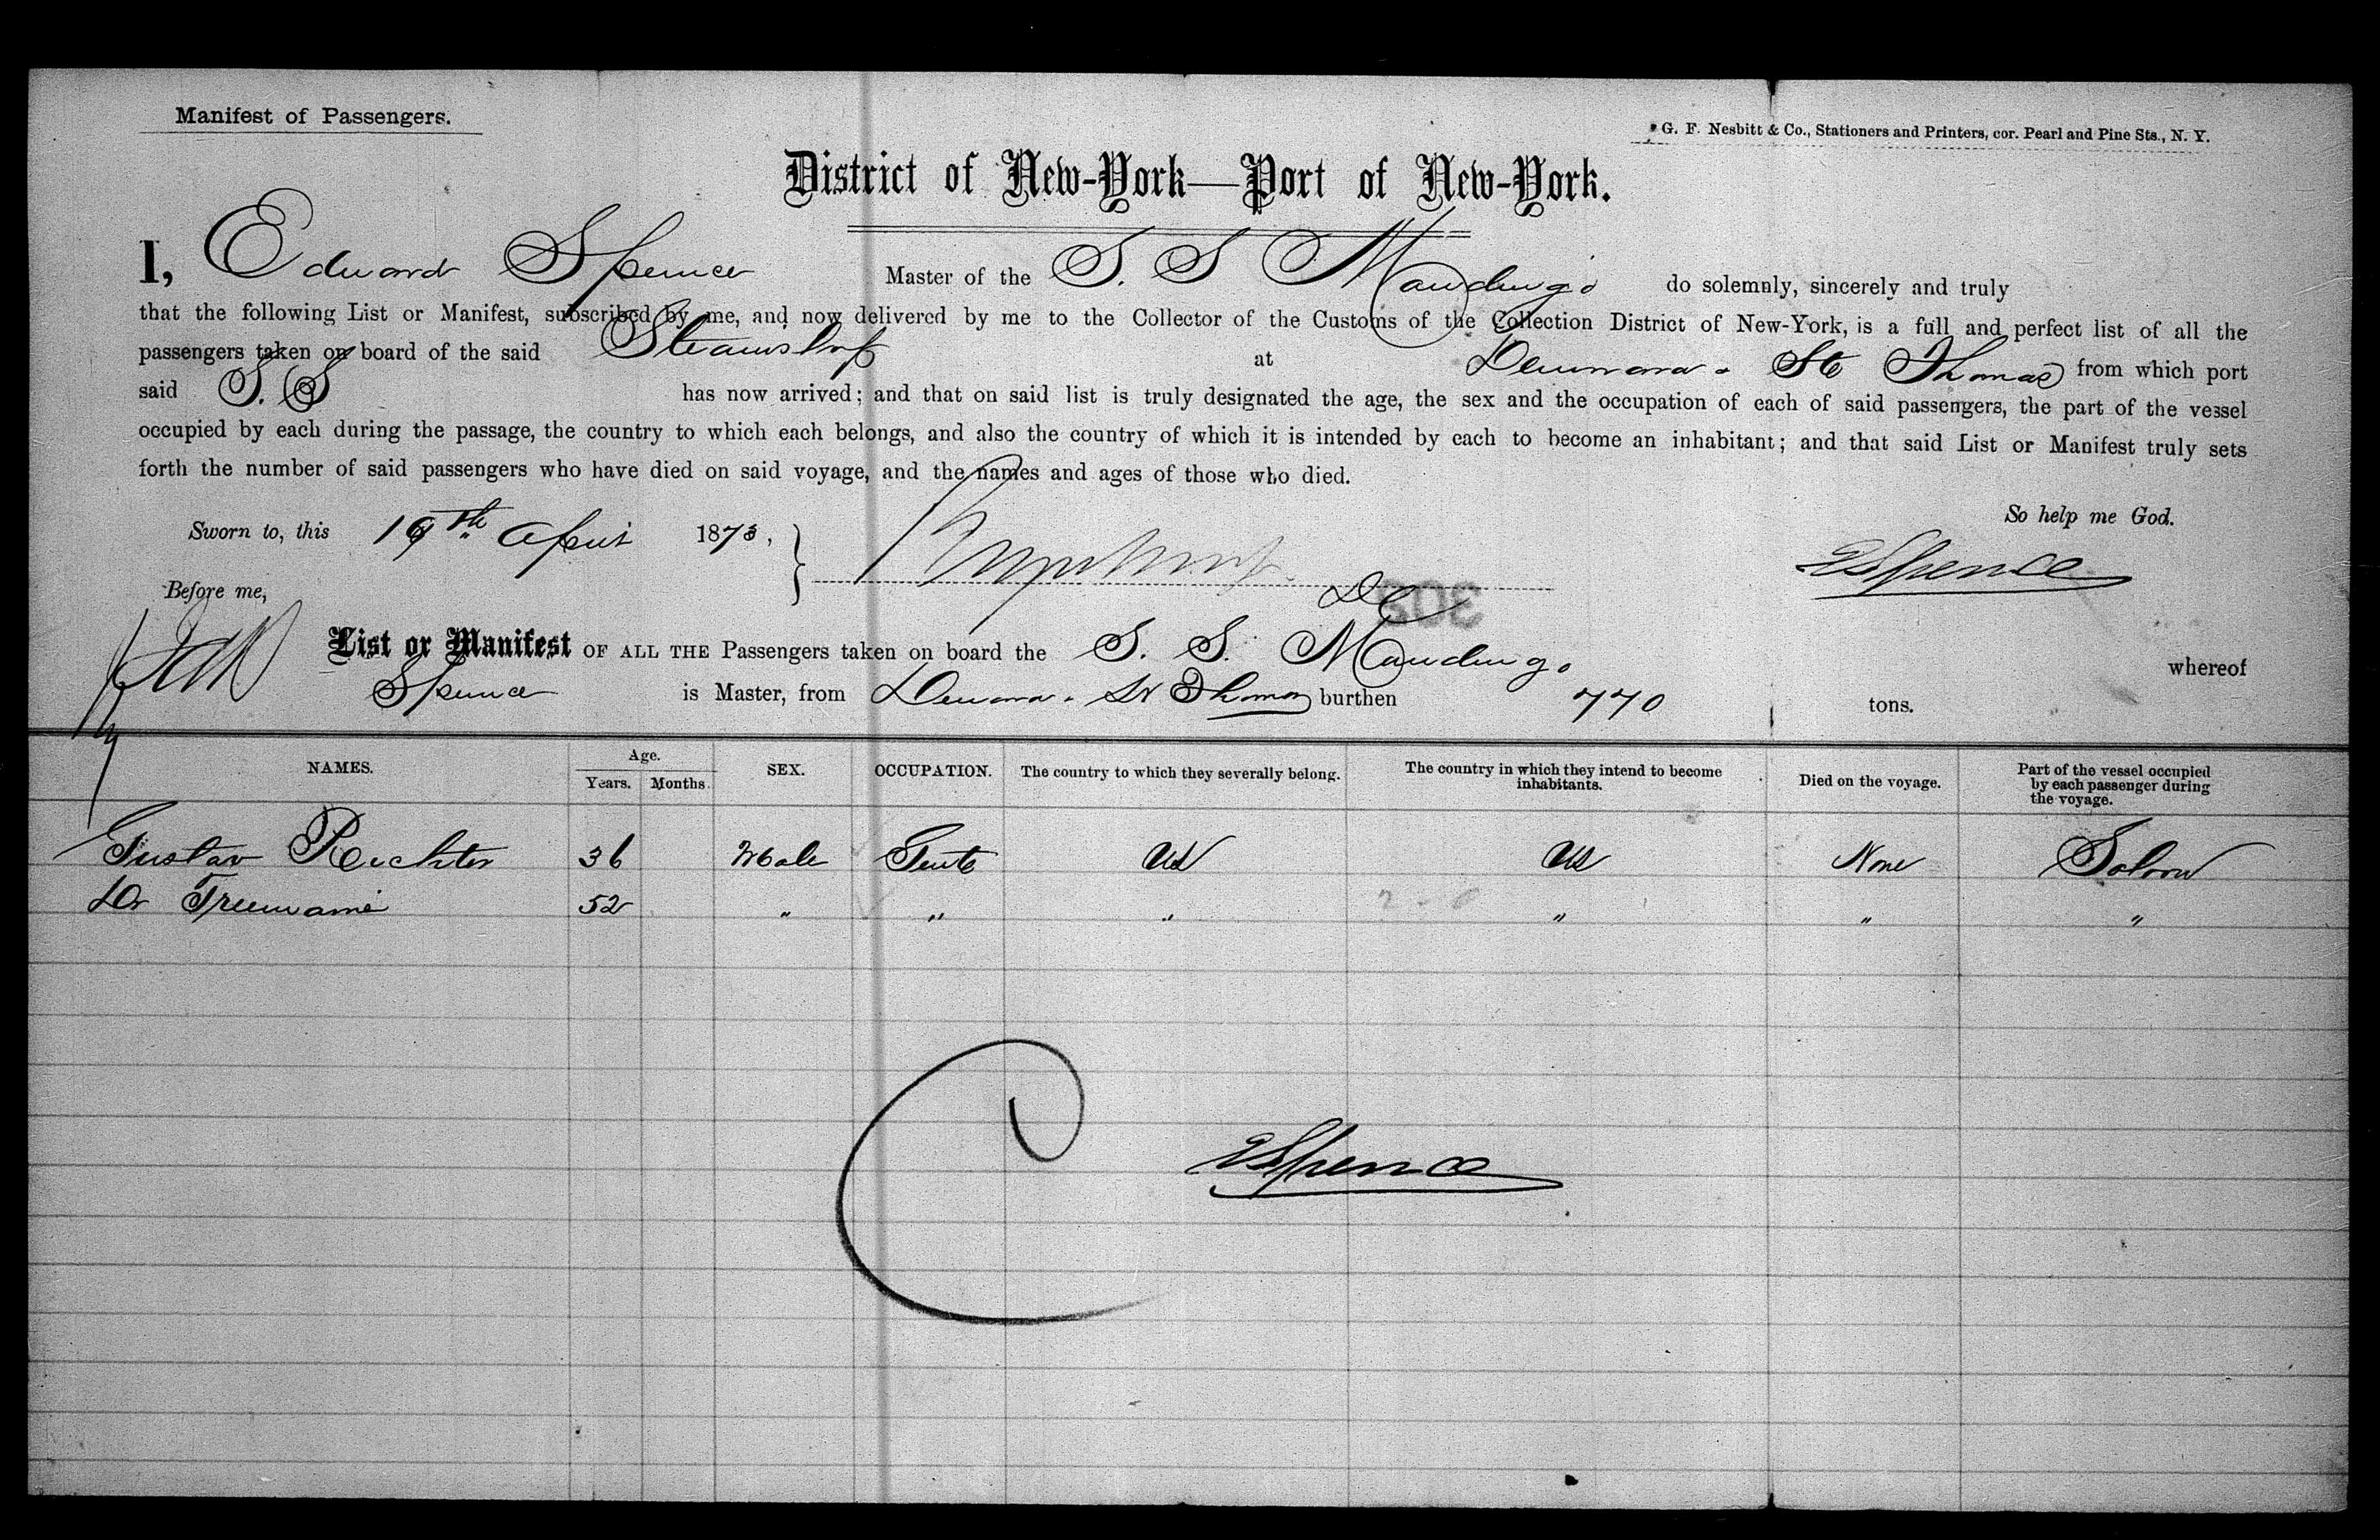 Manifest of Passengers.
G. F. Nesbitt & Co., Stationers and Printers, cor. Pearl and Pine Sts., N. Y.
District of New-York—Port of New-York.
I, Edward Spence Master of the S. S Mandingo do solemnly, sincerely and truly
that the following List or Manifest, subscribed by me, and now delivered by me to the Collector of the Customs of the Collection District of New-York, is a full and perfect list of all the
passengers taken on board of the said Steamship at Demerara & St Thomas from which port
said S. S has now arrived; and that on said list is truly designated the age, the sex and the occupation of each of said passengers, the part of the vessel
occupied by each during the passage, the country to which each belongs, and also the country of which it is intended by each to become an inhabitant; and that said List or Manifest truly sets
forth the number of said passengers who have died on said voyage, and the names and ages of those who died.
So help me God.
Sworn to, this 19th April 1873,
ESpence
Before me,
List or Manifest OF ALL THE Passengers taken on board the S. S. Mandingo whereof
Spence is Master, from Demerara & St Thomas burthen 770 tons.
NAMES. Age. Years. Months. SEX. OCCUPATION. The country to which they severally belong. The country in which they intend to become inhabitants. Died on the voyage. Part of the vessel occupied by each passenger during the voyage.
Gustav Richter 36 Male Gents US US None Saloon
Dr 52 " " " " " "
ESpence